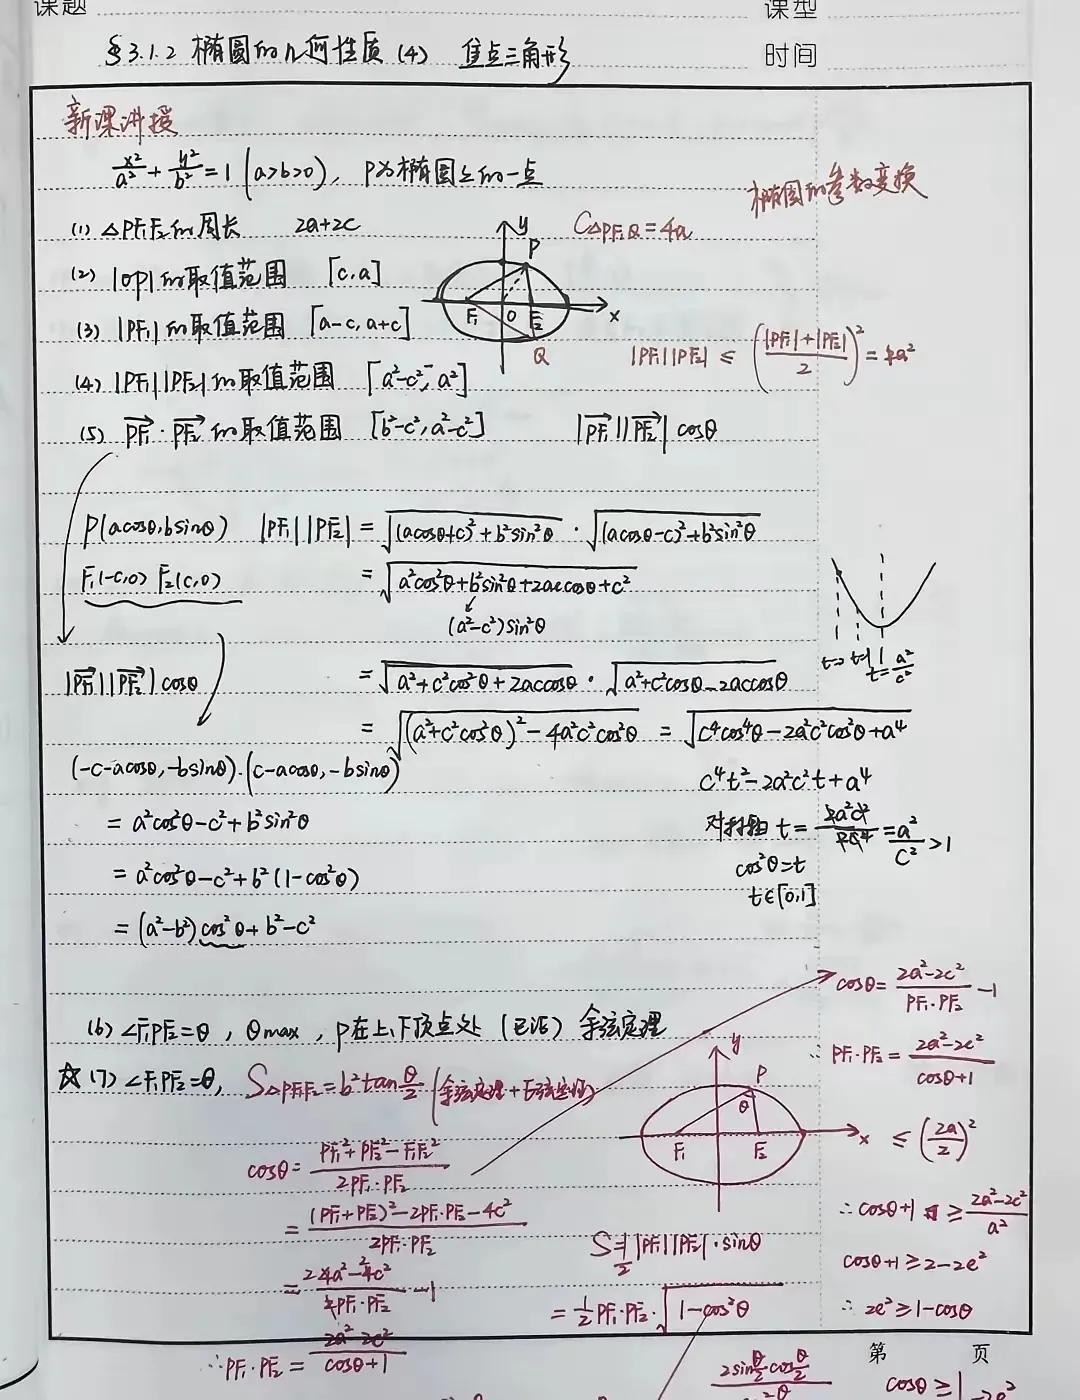 课题
课型
§3.1.2 椭圆的几何性质(4) 焦点三角形
时间
新课讲授
x²/a² + y²/b² = 1 (a>b>0), P为椭圆上的一点
椭圆的参数变换
(1) △PF₁F₂的周长 2a+2c
C△PF₁Q = 4a
(2) |OP|的取值范围 [c,a]
(3) |PF₁|的取值范围 [a-c, a+c]
y
P
F₁ O F₂ x
Q
|PF₁||PF₂| ≤ ((|PF₁|+|PF₂|)/2)² = a²
(4) |PF₁||PF₂|的取值范围 [a²-c², a²]
(5) PF₁·PF₂的取值范围 [b²-c², a²-c²] |PF₁||PF₂|cosθ
P(acosθ,bsinθ) |PF₁||PF₂| = √((acosθ+c)²+b²sin²θ) · √((acosθ-c)²+b²sin²θ)
F₁(-c,0) F₂(c,0) = √(a²cos²θ+b²sin²θ+2accosθ+c²)
(a²-c²)sin²θ
t=0 t=1 t=a²/c²
|PF₁||PF₂|cosθ = √(a²+c²cos²θ+2accosθ) · √(a²+c²cosθ-2accosθ)
= √((a²+c²cos²θ)²-4a²c²cos²θ) = √(c⁴cos⁴θ-2a²c²cos²θ+a⁴)
(-c-acosθ,-bsinθ)·(c-acosθ,-bsinθ)
c⁴t²-2a²c²t+a⁴
= a²cos²θ-c²+b²sin²θ
对称轴 t = 2a²c²/2c⁴ = a²/c² >1
= a²cos²θ-c²+b²(1-cos²θ)
cos²θ=t
t∈[0,1]
= (a²-b²)cos²θ+b²-c²
cosθ = (2a²-2c²)/(PF₁·PF₂) -1
(6) ∠F₁PF₂=θ, θmax, P在上、下顶点处 (已证) 余弦定理
∴ PF₁·PF₂ = (2a²-2c²)/(cosθ+1)
☆(7) ∠F₁PF₂=θ, S△PF₁F₂=b²tanθ/2 (余弦定理+
y
P
θ
F₁ F₂ x
≤ (2a/2)²
cosθ = (PF₁²+PF₂²-F₁F₂²)/(2PF₁·PF₂)
= ((PF₁+PF₂)²-2PF₁·PF₂-4c²)/(2PF₁·PF₂)
∴ cosθ+1 ≥ (2a²-2c²)/a²
S=1/2|PF₁||PF₂|·sinθ
cosθ+1≥2-2e²
= (4a²-4c²)/(2PF₁·PF₂) -1
= 1/2 PF₁·PF₂·√(1-cos²θ)
∴ 2e²≥1-cosθ
∴PF₁·PF₂ = (2a²-2c²)/(cosθ+1)
第 页
2sinθ/2cosθ/2
cosθ≥1-2e²